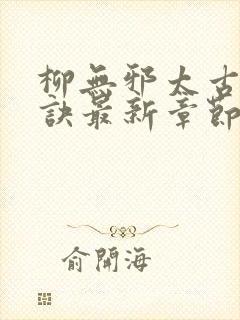 柳無邪太古
訣最新章節
俞開海